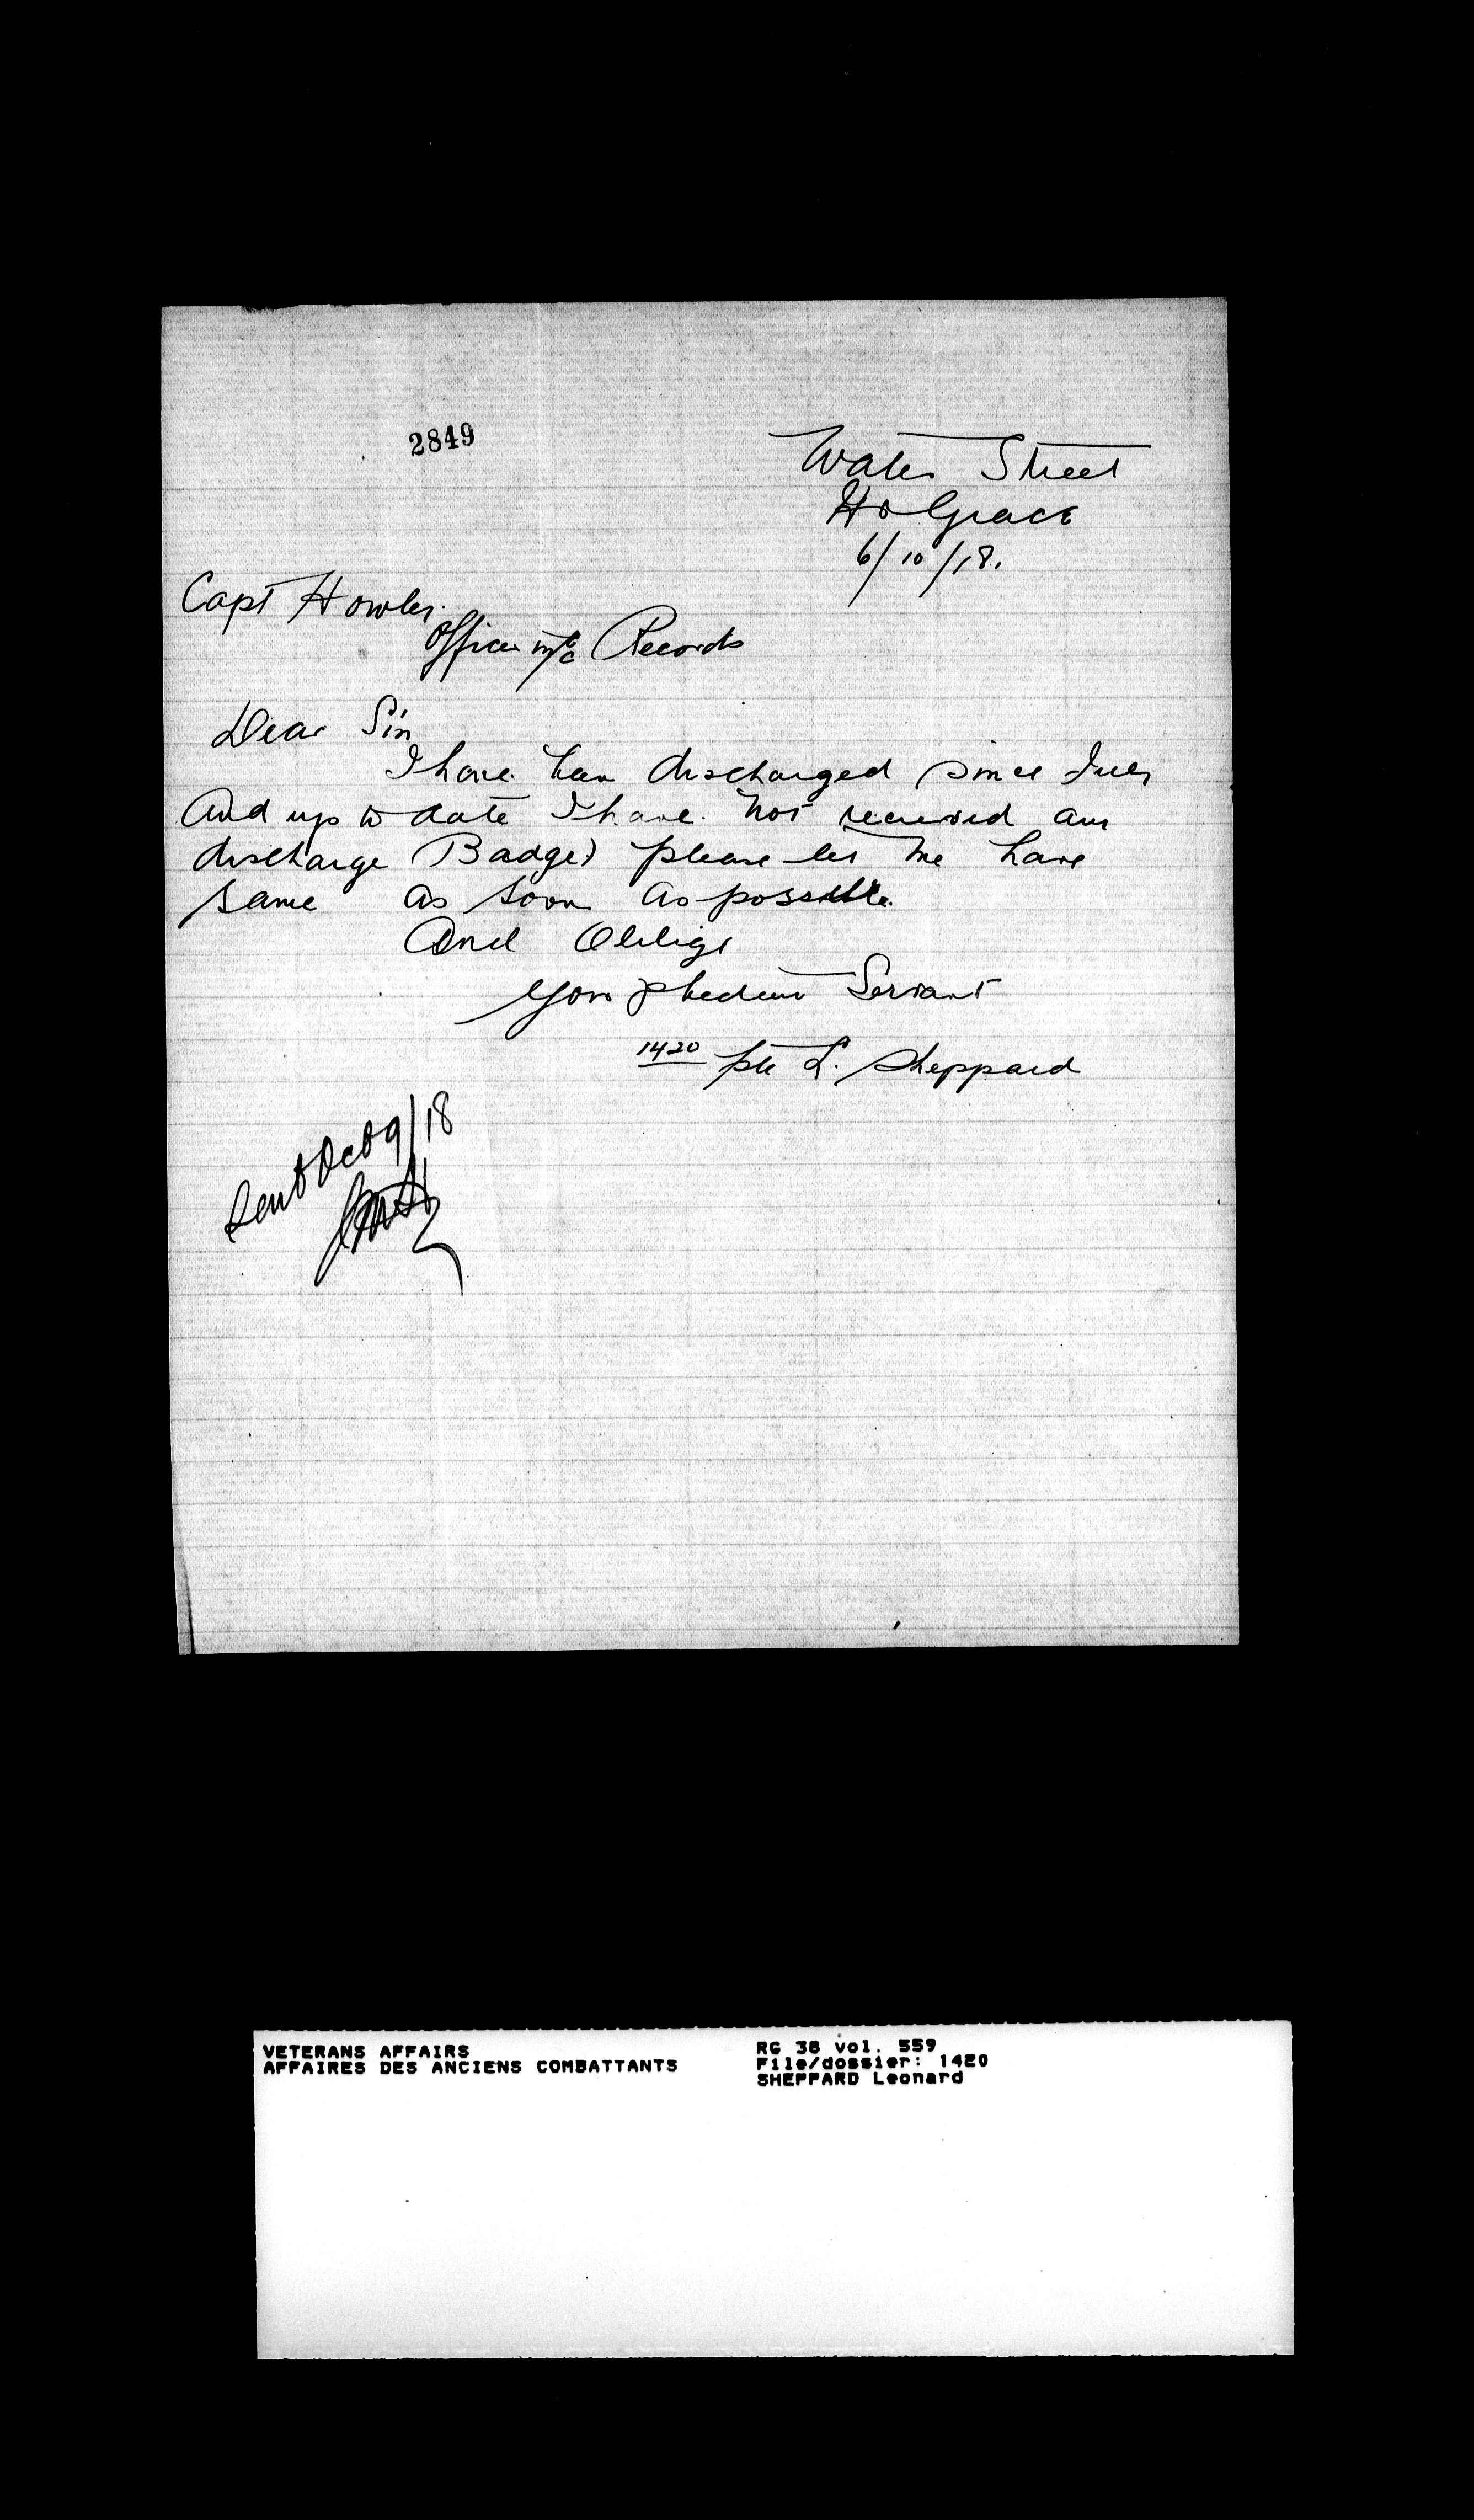 2849
Water Street
Hr Grace
6/10/18.
Capt Howley.
Officer i/c Records
Dear Sir
I have been discharged since July
And up to date I have not received any
discharge Badge) please let me have
same as soon as possible.
And Oblige
Your Obedient Servant
1420 Pte L. Sheppard
Sent Oct 9/18
VETERANS AFFAIRS
AFFAIRES DES ANCIENS COMBATTANTS
RG 38 vol. 559
File/dossier: 1420
SHEPPARD Leonard